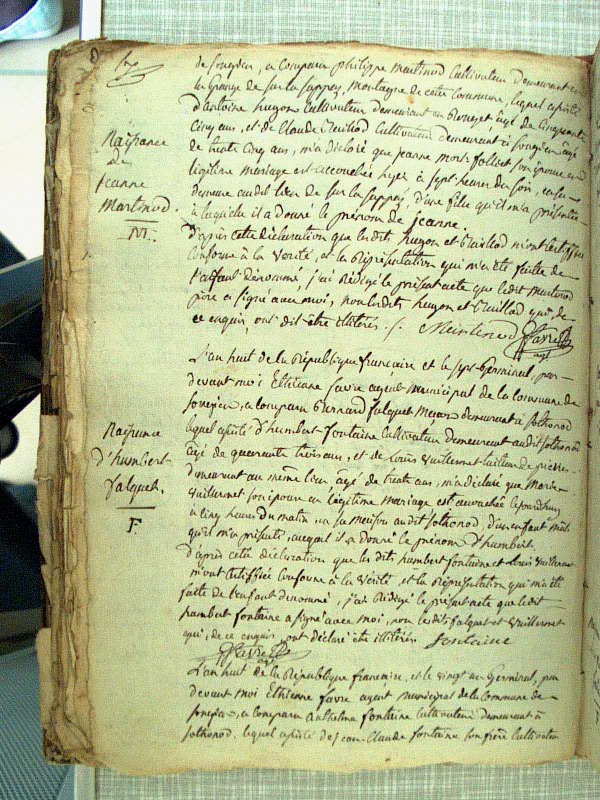 de songieu, a comparu philippe martinod Cultivateur demeurant en
la Grange de sur la sappey, montagne de cette commune, lequel assisté
d'antoine hugon Cultivateur demeurant au agé de Cinquante
Cinq ans, et de Claude Cultivateur demeurant à songieu agé
de trente Cinq ans, m'a déclaré que jeanne mori Jolliet son épouse en
légitime mariage est accouchée hyer à sept heures du soir, en sa
demeure audit lieu de sur la sappey, d'une fille qu'il m'a présentée
à laquelle il a donné le prénom de jeanne.
Naissance
de
jeanne
Martinod.
M.
d'après cette déclaration que lesdits hugon et m'ont certiffié
Conforme à la vérité, et la Représentation qui m'a été faitte de
l'enfant dénommé, j'ai Rédigé le présent acte que ledit martinod
père a signé avec moi, non lesdits hugon et qui de
ce enquis, ont dit être illitérés. Martinod favre
agt
L'an huit de la République française et le sept Germinal, par
devant moi Ethienne favre agent municipal de la Commune de
songieu, a comparu Bernard falquet Meunier demeurant a sothonod
lequel assisté d'humbert fontaine Cultivateur demeurant audit sothonod
Naissance
d'humbert
falquet.
F
agé de quarante trois ans, et de Louis vuillermet tailleur de pierres
demeurant au même lieu, agé de trente ans, m'a déclaré que Marie
vuillermet son épouse en légitime mariage est accouchée
à Cinq heures du matin, en sa maison audit sothonod d'un enfant mâle
qu'il m'a présenté, auquel il a donné le prénom d'humbert
d'après cette déclaration que lesdits humbert fontaine et Louis vuillermet
m'ont certiffiée Conforme à la vérité, et la Représentation qui m'a été
faite de l'enfant dénommé, j'ai Rédigé le présent acte que ledit
humbert fontaine a signé avec moi, non lesdits falquet et vuillermet
qui, de ce enquis, ont déclaré être illitérés. fontaine
favre
agt
L'an huit de la République française, et le vingt un Germinal, par
devant moi Ethienne favre agent municipal de la Commune de
songieu, a comparu Anthelme fontaine Cultivateur demeurant à
sothonod, lequel assisté de jean Claude fontaine son frère Cultivateur